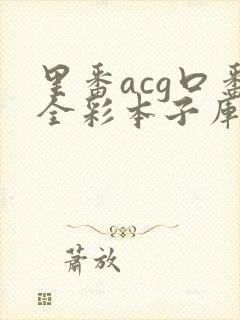 里番acg口番
全彩本子库
萧放